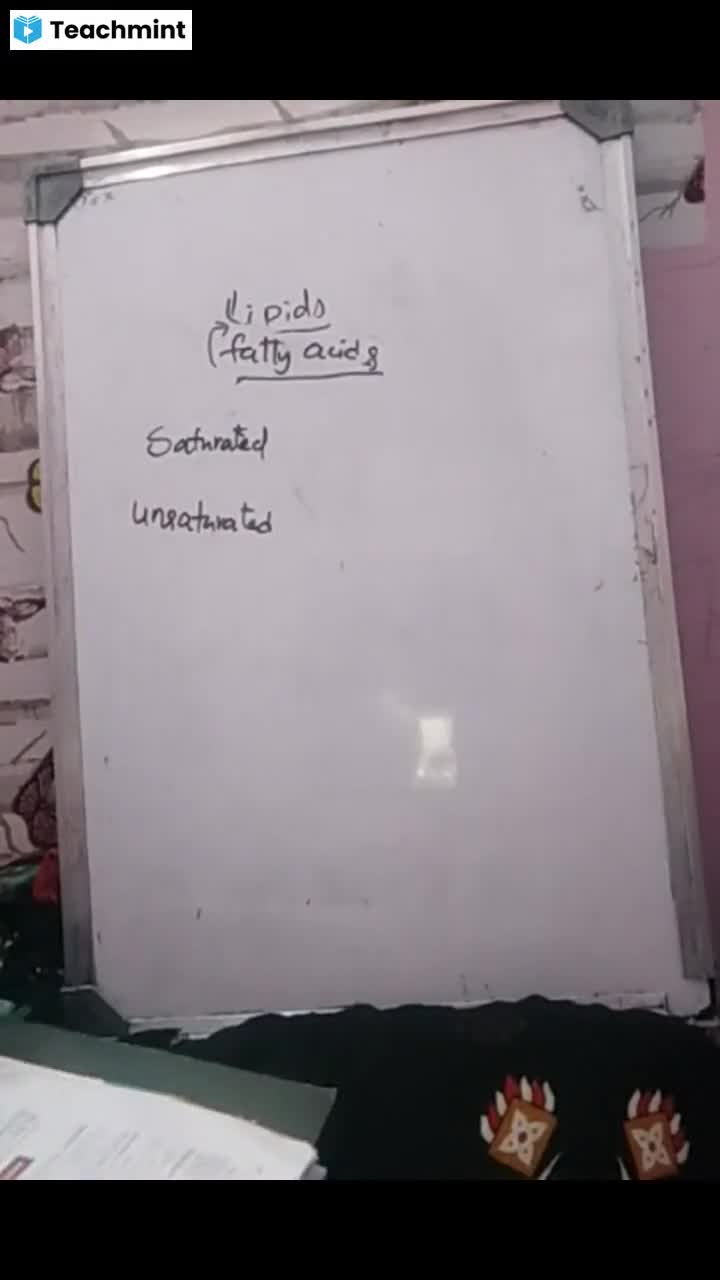 Teachmint
Lipids
fatty acids
Saturated
Unsaturated